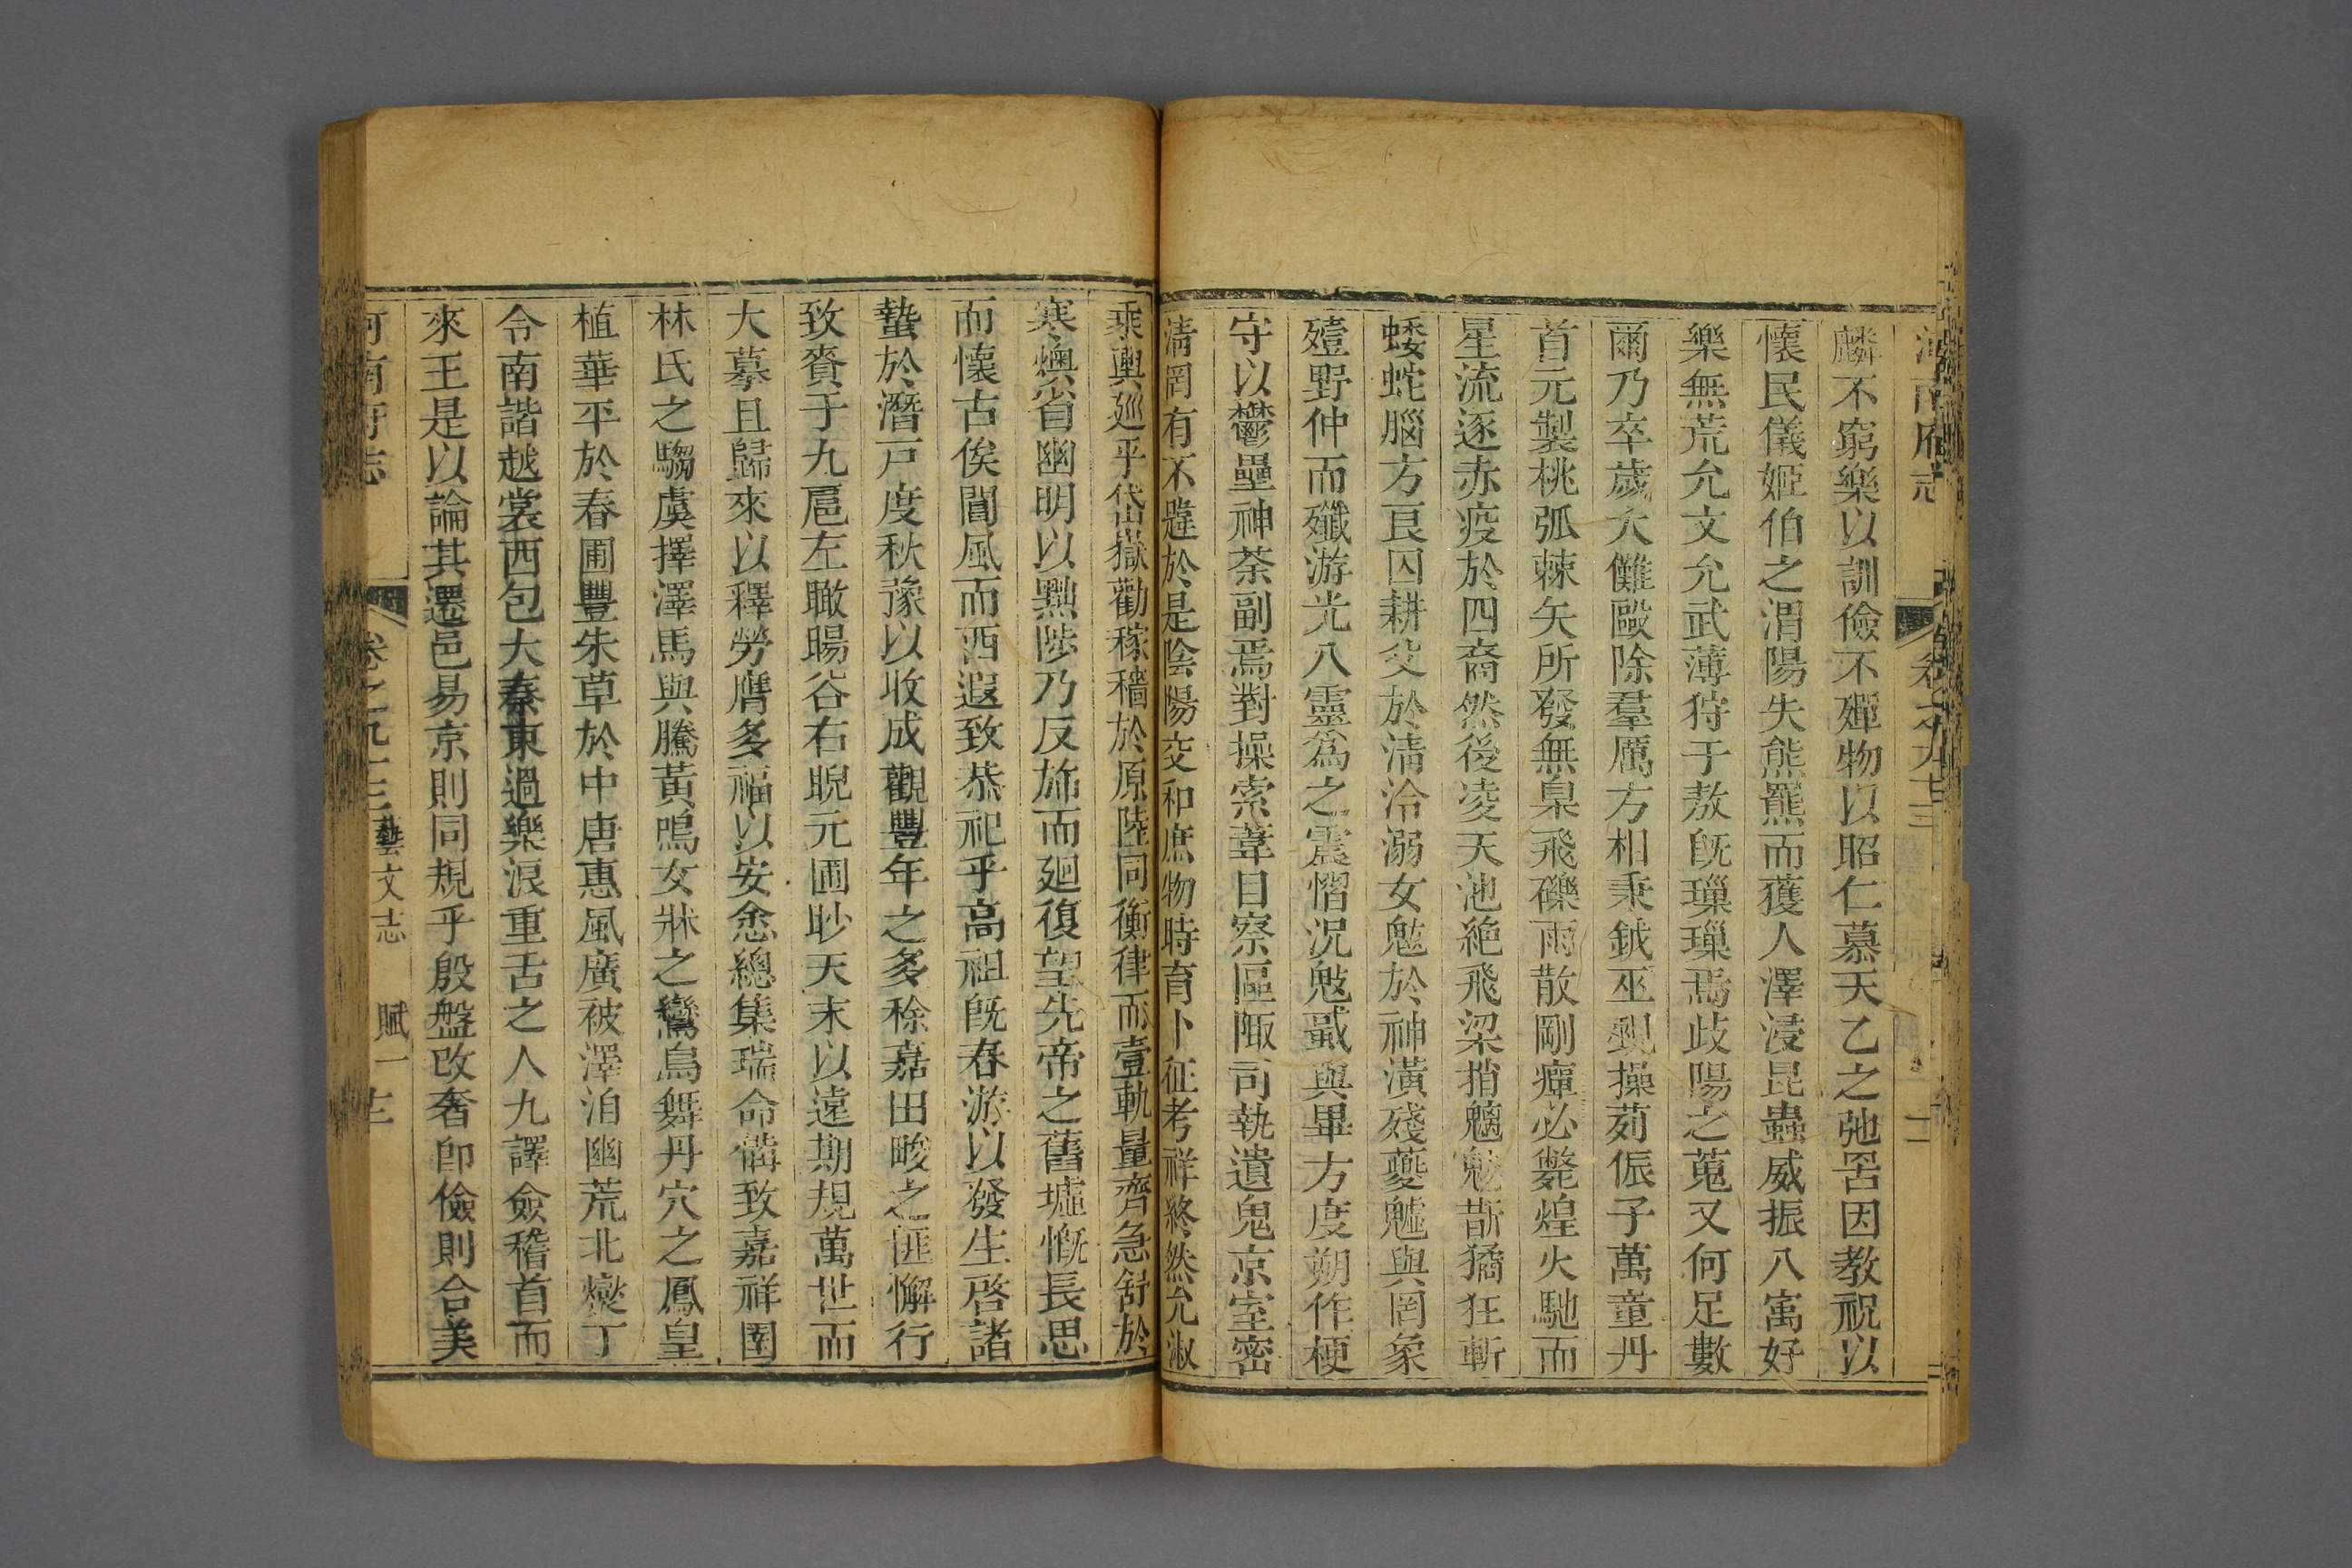 河南府志 卷之九十三
麟不窮樂以訓儉不殫物以昭仁慕天乙之弛罟因教祝以
懷民儀姬伯之渭陽失熊羆而獲人澤浸昆蟲威振八寓好
樂無荒允文允武薄狩于敖旣璅璅焉歧陽之蒐又何足數
爾乃卒歲大儺毆除羣厲方相秉鉞巫覡操茢侲子萬童丹
首元製桃弧棘矢所發無臬飛礫雨散剛癉必斃煌火馳而
星流逐赤疫於四裔然後凌天池絶飛梁捎魑魅斮獝狂斬
蜲蛇腦方良囚耕父於清泠溺女魃於神潢殘夔魖與罔象
殪野仲而殲游光八靈爲之震慴况鬾蜮與畢方度朔作梗
守以鬱壘神荼副焉對操索葦目察區陬司執遺鬼京室密
清罔有不韙於是陰陽交和庶物時育卜征考祥終然允淑
乘輿巡乎岱嶽勸稼穡於原陸同衡律而壹軌量齊急舒於
寒燠省幽明以黜陟乃反斾而廻復望先帝之舊墟慨長思
而懷古俟閶風而西遐致恭祀乎高祖旣春游以發生啓諸
蟄於潛戸度秋豫以收成觀豐年之多稌嘉田畯之匪懈行
致賚于九扈左瞰暘谷右睨元圃眇天末以遠期規萬世而
大摹且歸來以釋勞膺多福以安悆總集瑞命備致嘉祥圉
林氏之騶虞擇澤馬與騰黃鳴女牀之鸞鳥舞丹穴之鳳皇
植華平於春圃豐朱草於中唐惠風廣被澤洎幽荒北燮丁
令南諧越裳西包大秦東過樂浪重舌之人九譯僉稽首而
來王是以論其遷邑易京則同規乎殷盤改奢即儉則合美
河南府志 卷之九十三 藝文志 賦一 十二